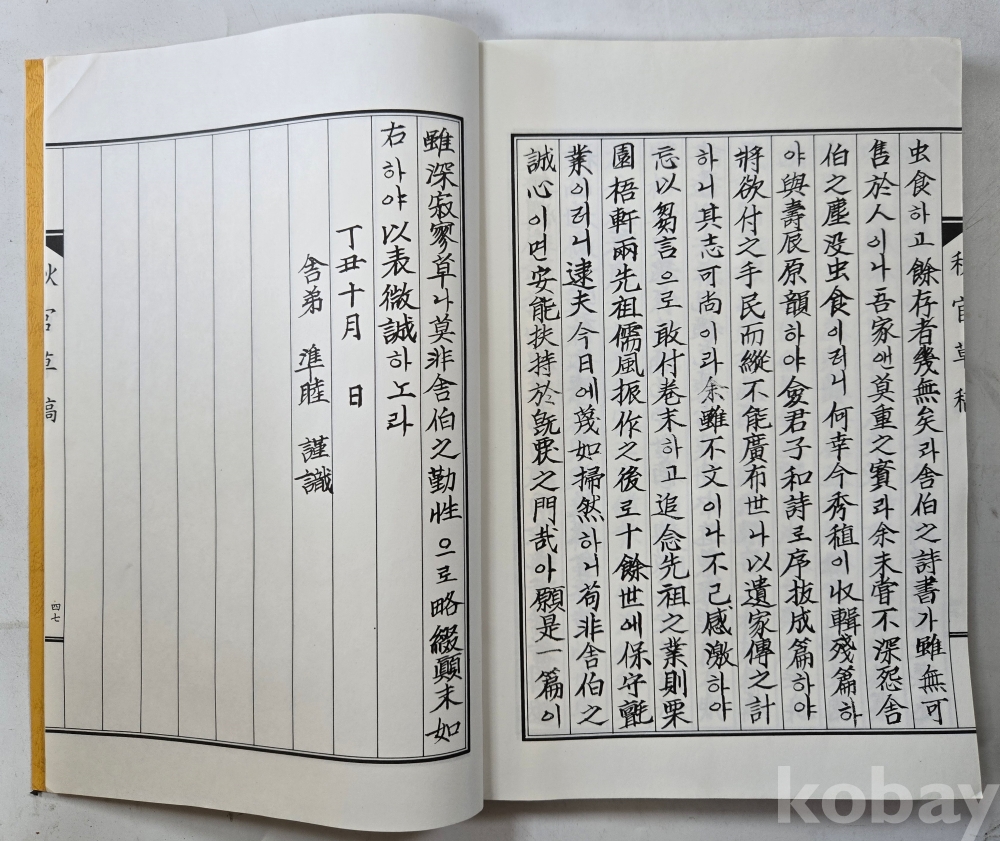 秋官草稿
虫食하고餘存者幾無矣라舍伯之詩書가雖無可
售於人이나吾家앤莫重之寶라余未嘗不深怨舍
伯之塵没虫食이러니何幸今秀稙이收輯殘篇하
야與壽辰原韻하야僉君子和詩로序抜成篇하야
將欲付之手民而縱不能廣布世나以遺家傳之計
하니其志可尚이라余雖不文이나不已感激하야
忘以芻言으로敢付卷末하고追念先祖之業則栗
園梧軒兩先祖儒風振作之後로十餘世에保守氈
業이러니逮夫今日에蔑如掃然하니苟非舍伯之
誠心이면安能扶持於旣衰之門哉아願是一篇이
雖深寂寥草나莫非舍伯之勤性으로略綴顚末如
右하야以表微誠하노라
丁丑十月 日
舍弟 準睦 謹識
秋官草稿
四七
kobay